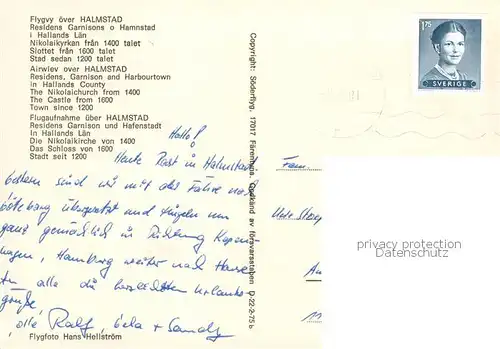 Flygvy över HALMSTAD
Residens Garnisons o Hamnstad
i Hallands Län
Nikolaikyrkan från 1400 talet
Slottet från 1600 talet
Stad sedan 1200 talet
Airwiev over HALMSTAD
Residens, Garnison and Harbourtown
in Hallands County
The Nikolaichurch from 1400
The Castle from 1600
Town since 1200
Flugaufnahme über HALMSTAD
Residens Garnison und Hafenstadt
In Hallands Län
Die Nikolaikirche von 1400
Das Schloss von 1600
Stadt seit 1200
Hallo!
Heute Rast in Halmstad
gestern sind wir mit der Fähre nach
Göteborg übergesetzt und
ganz gemächlich in Richtung
Hamburg weiter nach
alle die herzlichsten Urlaubs-
grüße
alle Ralf, + Sandy
Flygfoto Hans Hellström
Copyright: Söderflyg. 17017 Färentuna. Godkänd av försvarsstaben D-22-2-75 b
1.75
SVERIGE
Fam.
privacy protection
Datenschutz